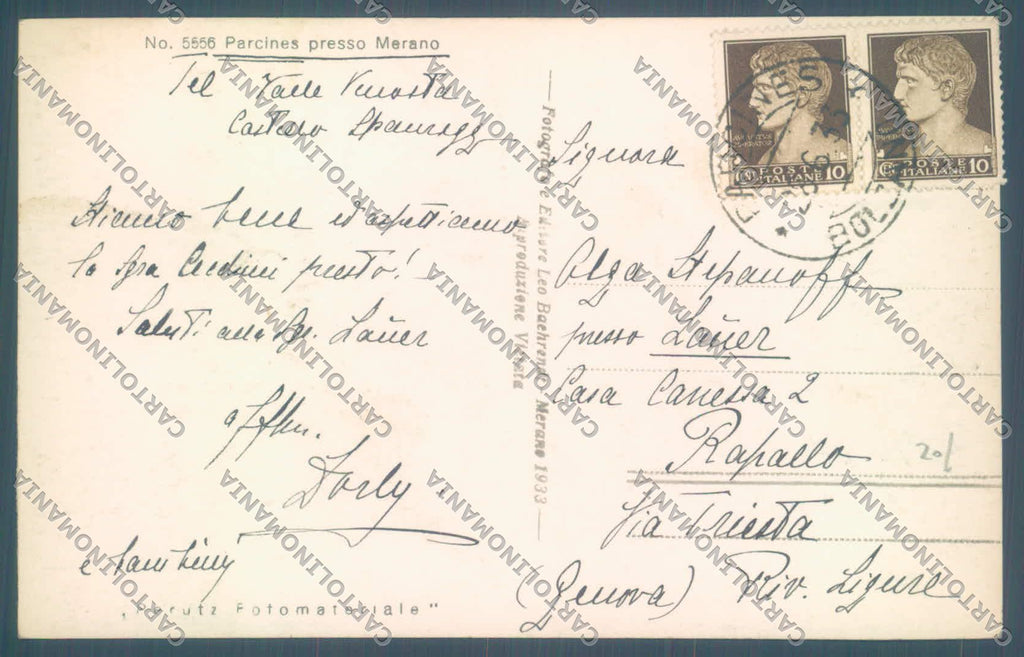 No. 5556 Parcines presso Merano
Tel Valle Venosta
Castaro Spauregg
Stiamo bene ed aspettiamo
la Sgra presto!
Saluti alla Sg. Laüer
affm.
Dorly
e bambini
„Perutz Fotomateriale"
— Fotografo e Editore Leo Baehrendt Merano 1933 —
Riproduzione Vietata
POSTE ITALIANE 10
POSTE ITALIANE 10
BOLZANO
Signora
Olga Stepanoff
presso Laüer
Casa Canessa 2
Rapallo
20/
Via Triesta
(Genova) Riv. Ligure
CARTOLINOMANIA